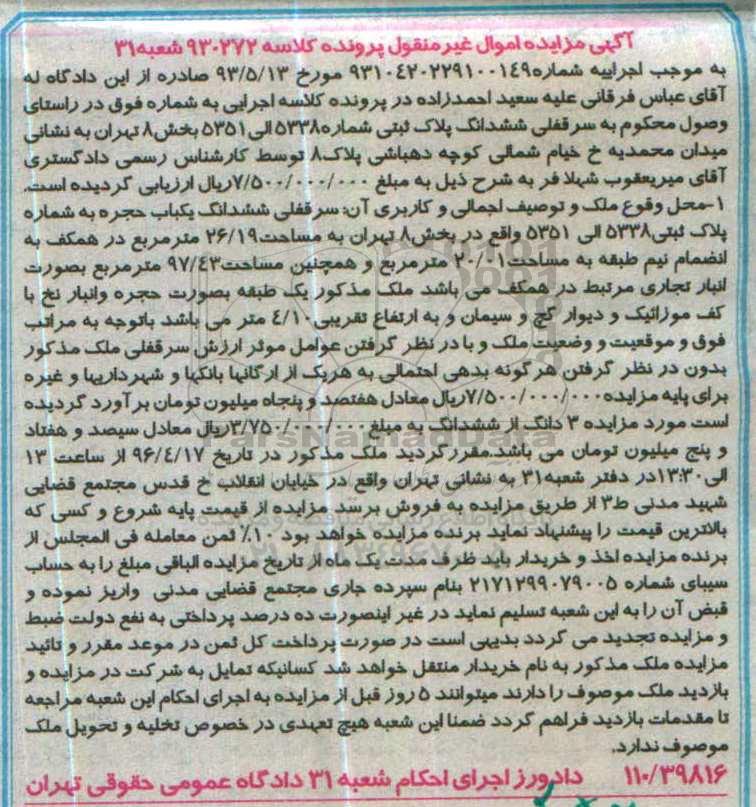 آگهی مزایده اموال غیرمنقول پرونده کلاسه ۹۳۰۲۷۲ شعبه۳۱
به موجب اجراییه شماره۹۳۱۰۴۲۰۲۲۹۱۰۰۱۴۹ مورخ ۹۳/۵/۱۳ صادره از این دادگاه له
آقای عباس فرقانی علیه سعید احمدزاده در پرونده کلاسه اجرایی به شماره فوق در راستای
وصول محکوم به سرقفلی ششدانگ پلاک ثبتی شماره۵۳۳۸الی۵۳۵۱ بخش۸ تهران به نشانی
میدان محمدیه خ خیام شمالی کوچه دهباشی پلاک۸ توسط کارشناس رسمی دادگستری
آقای میریعقوب شهلا فر به شرح ذیل به مبلغ ۷/۵۰۰/۰۰۰/۰۰۰ریال ارزیابی گردیده است.
۱-محل وقوع ملک و توصیف اجمالی و کاربری آن: سرقفلی ششدانگ یکباب حجره به شماره
پلاک ثبتی۵۳۳۸ الی ۵۳۵۱ واقع در بخش۸ تهران به مساحت۲۶/۱۹ مترمربع در همکف به
انضمام نیم طبقه به مساحت۲۰/۰۱ مترمربع و همچنین مساحت۹۷/۴۳ مترمربع بصورت
انبار تجاری مرتبط در همکف می باشد ملک مذکور یک طبقه بصورت حجره وانبار نخ با
کف موزائیک و دیوار گچ و سیمان و به ارتفاع تقریبی۴/۱۰ متر می باشد باتوجه به مراتب
فوق و موقعیت و وضعیت ملک و با در نظر گرفتن عوامل موثر ارزش سرقفلی ملک مذکور
بدون در نظر گرفتن هرگونه بدهی احتمالی به هریک از ارگانها بانکها و شهرداریها و غیره
برای پایه مزایده۷/۵۰۰/۰۰۰/۰۰۰ریال معادل هفتصد و پنجاه میلیون تومان برآورد گردیده
است مورد مزایده ۳ دانگ از ششدانگ به مبلغ ۳/۷۵۰/۰۰۰/۰۰۰ریال معادل سیصد و هفتاد
و پنج میلیون تومان می باشد.مقررگردید ملک مذکور در تاریخ ۹۶/۴/۱۷ از ساعت ۱۳
الی۱۳:۳۰در دفتر شعبه۳۱ به نشانی تهران واقع در خیابان انقلاب خ قدس مجتمع قضایی
شهید مدنی ط۳ از طریق مزایده به فروش برسد مزایده از قیمت پایه شروع و کسی که
بالاترین قیمت را پیشنهاد نماید برنده مزایده خواهد بود ۱۰٪ ثمن معامله فی المجلس از
برنده مزایده اخذ و خریدار باید ظرف مدت یک ماه از تاریخ مزایده الباقی مبلغ را به حساب
سیبای شماره ۲۱۷۱۲۹۹۰۷۹۰۰۵ بنام سپرده جاری مجتمع قضایی مدنی واریز نموده و
قبض آن را به این شعبه تسلیم نماید در غیر اینصورت ده درصد پرداختی به نفع دولت ضبط
و مزایده تجدید می گردد بدیهی است در صورت پرداخت کل ثمن در موعد مقرر و تائید
مزایده ملک مذکور به نام خریدار منتقل خواهد شد کسانیکه تمایل به شرکت در مزایده و
بازدید ملک موصوف را دارند میتوانند ۵ روز قبل از مزایده به اجرای احکام این شعبه مراجعه
تا مقدمات بازدید فراهم گردد ضمنا این شعبه هیچ تعهدی در خصوص تخلیه و تحویل ملک
موصوف ندارد.
۱۱۰/۳۹۸۱۶ دادورز اجرای احکام شعبه ۳۱ دادگاه عمومی حقوقی تهران
ParsNamadData